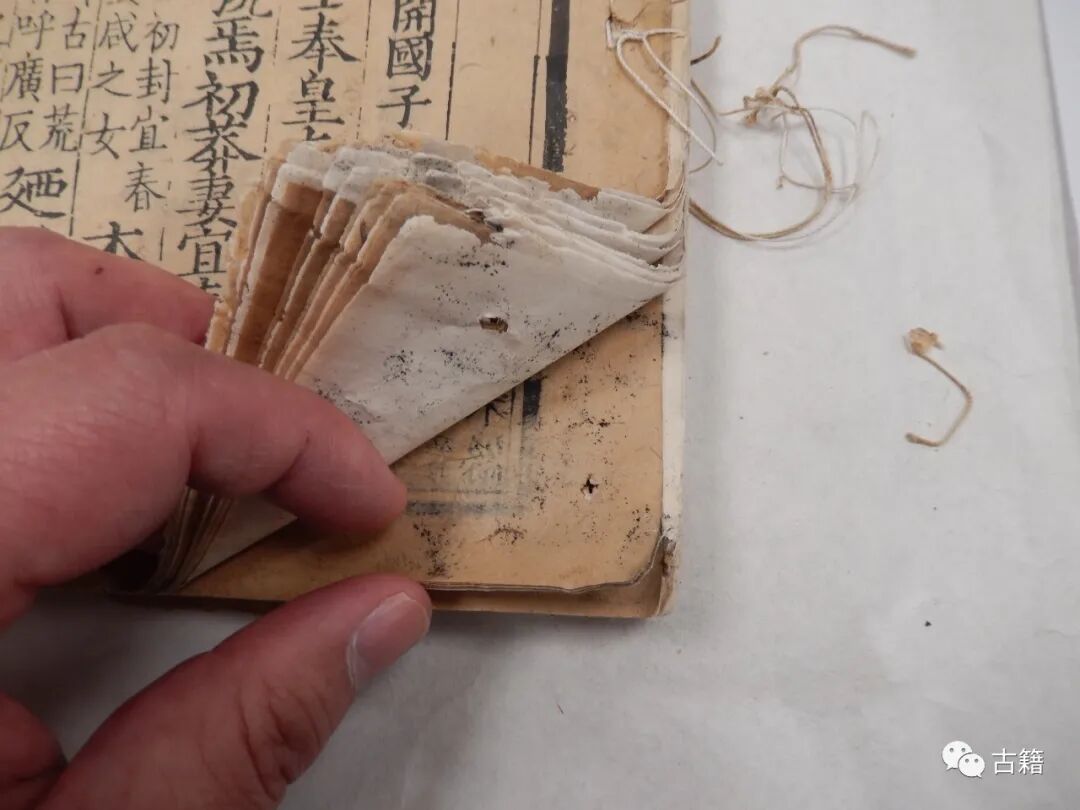 開國子
奉皇
焉初莽妻宜
初封宜春
咸之女
古曰荒
呼廣反
廼
古籍